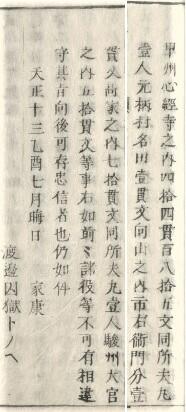 甲州心經寺之內四拾四貫百八拾五文同所夫丸
壹人元柄村名田壹貫文向山之內市右衞門分壹
貫文府家之內七拾貫文同所夫丸壹人駿州大官
之內五拾貫文等事右如前〻諸役等不可有相違
守其旨向後可存忠信者也仍如件
天正十三乙酉七月晦日　家康
渡邊囚獄トノヘ